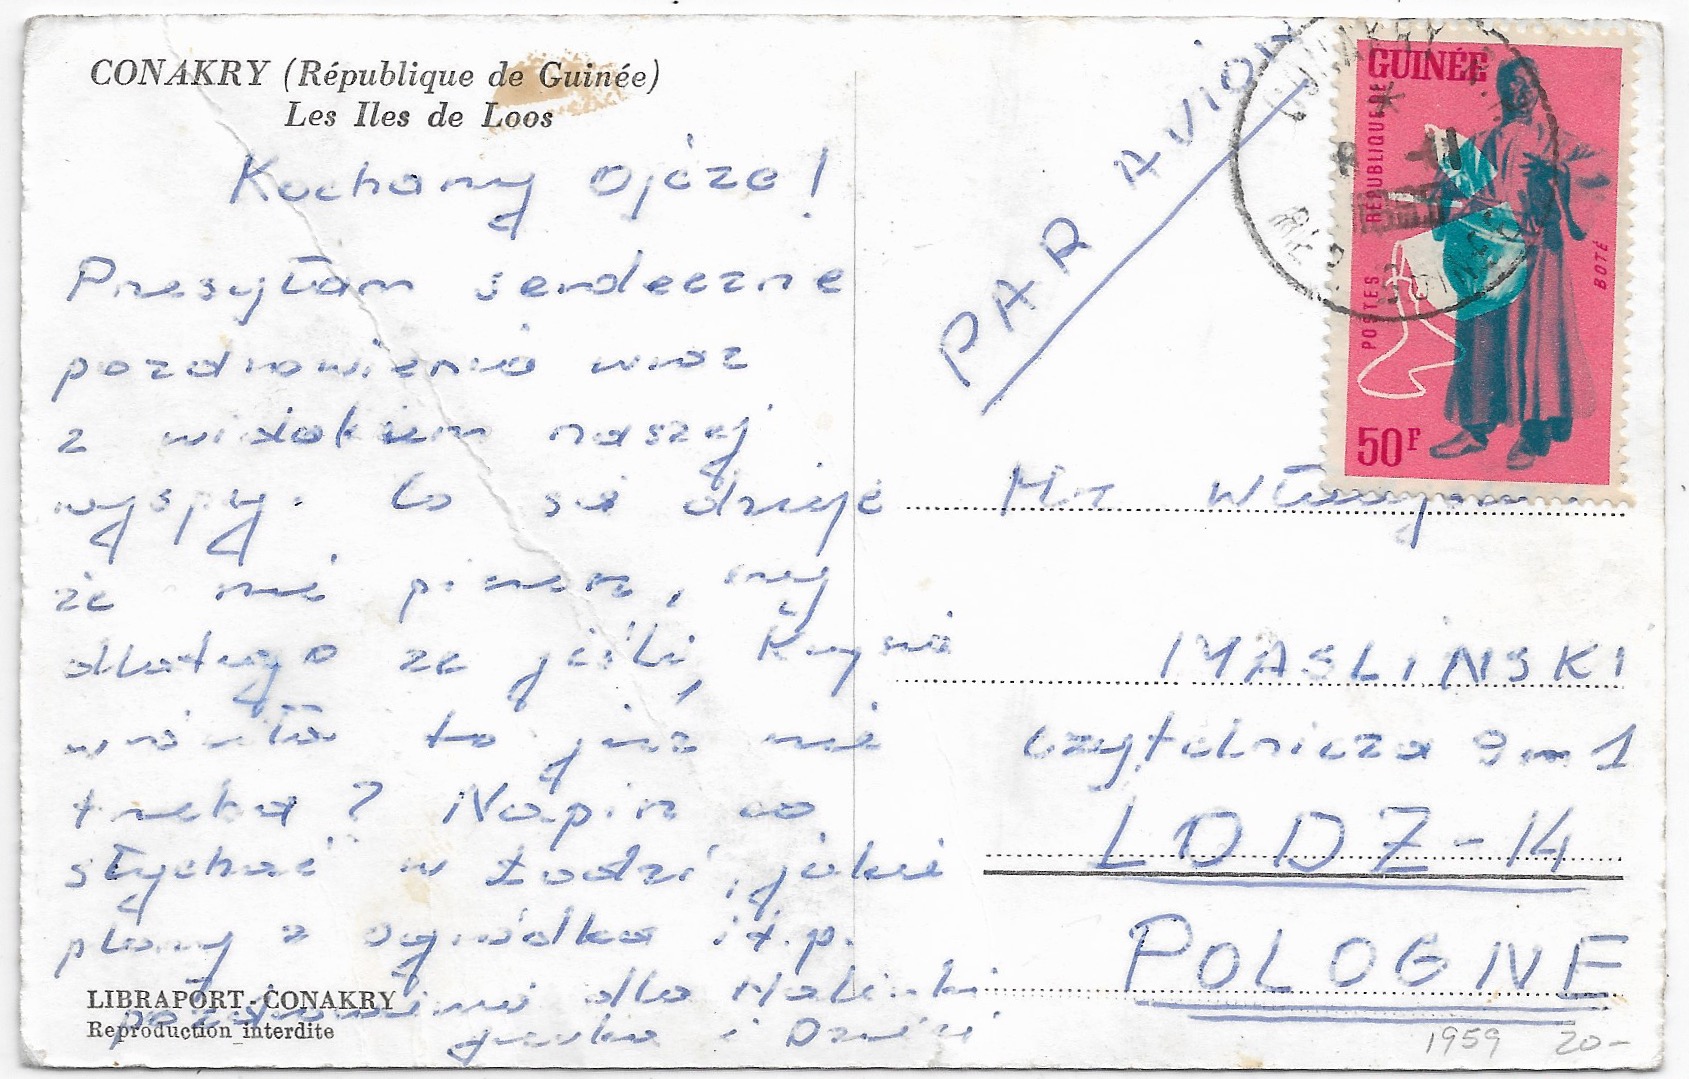 CONAKRY (République de Guinée)
Les Iles de Loos
Kochany Ojcze!
Przesyłam serdeczne
pozdrowienia wraz
z widokiem naszej
wyspy. Co się dzieje
że nie piszesz, czy
dlatego że jeśli, Krysia
wróciła to już nie
trzeba? Napisz co
słychać w Łodzi, jakie
plany z ogródka i t.p.
pozdrowienia dla Halinki
Jurka i
LIBRAPORT-CONAKRY
Reproduction interdite
PAR AVION
CONAKRY
GUINÉE
RÉPUBLIQUE DE
POSTES
BOTÉ
50F
Mr
MASLINSKI
Czytelnicza 9 m 1
LODZ-14
POLOGNE
1959 20-